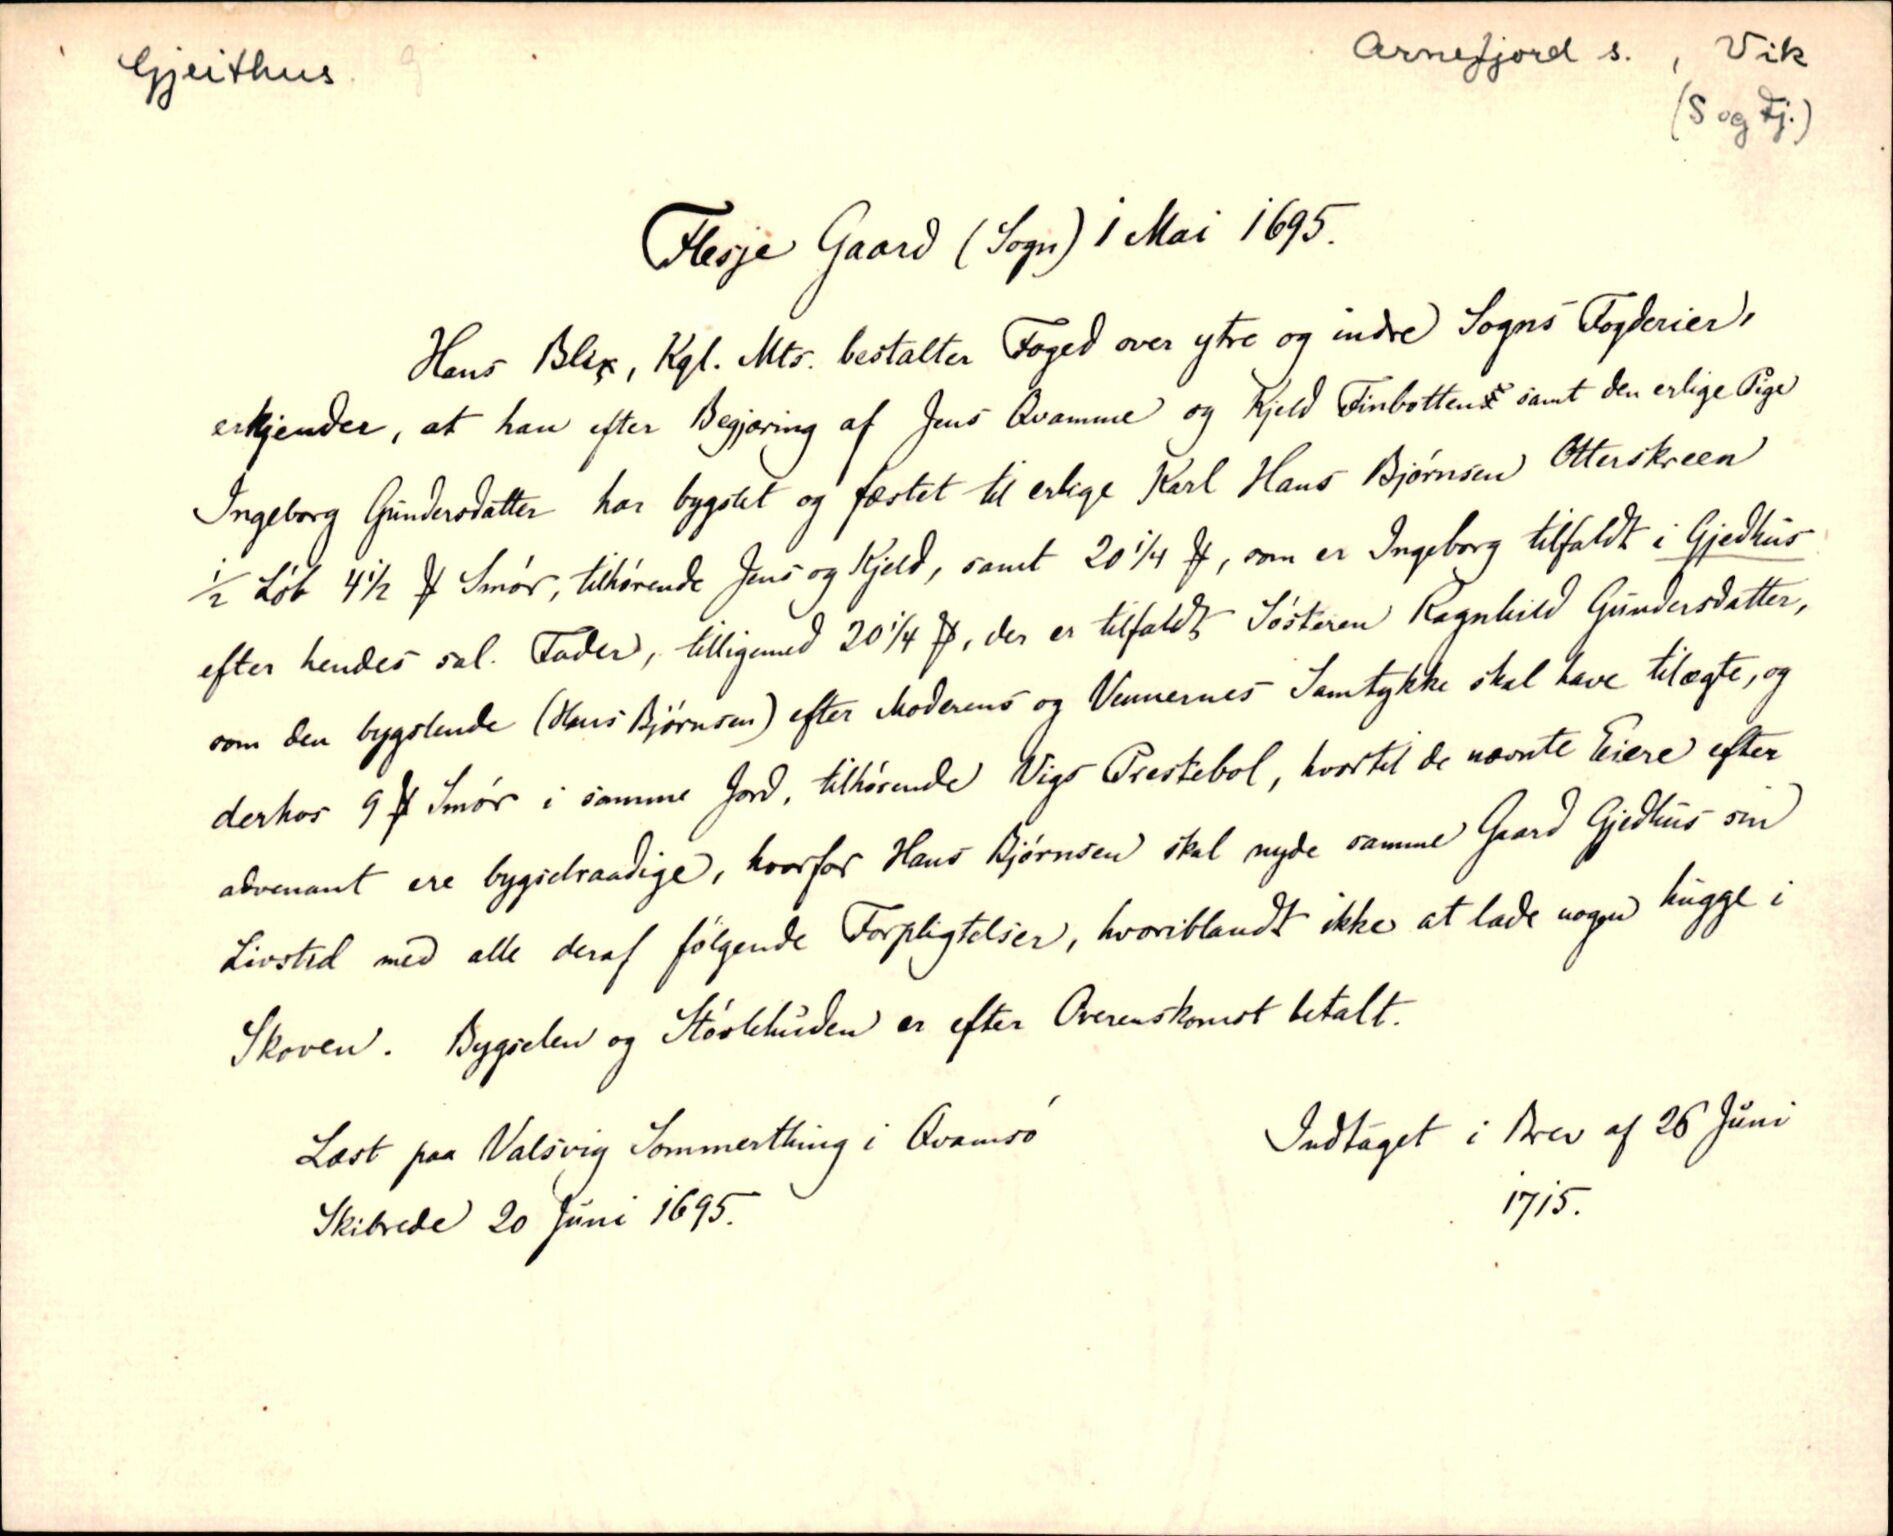 Gjeithus g
Arnefjord s. , Vik
(S og Fj.)
Flesje Gaard (Sogn) 1 Mai 1695.
Hans Blix, Kgl. Mts. bestalter Foged over ytre og indre Sogns Fogderier,
erkjender, at han efter Begjæring af Jens Qvamme og Kjeld Finbotten samt den erlige Pige
Ingeborg Gundersdatter har bygslet og fæstet til erlige Karl Hans Bjørnsen Otterskreen
1/2 Løb 4 1/2 ℔ Smør, tilhørende Jens og Kjeld, samt 20 1/4 ℔, som er Ingeborg tilfaldt i Gjedhus
efter hendes sal. Fader, tilligemed 20 1/4 ℔, der er tilfaldt Søsteren Ragnhild Gundersdatter,
som den bygslende (Hans Bjørnsen) efter Moderens og Vennernes Samtykke skal have tilægte, og
derhos 9 ℔ Smør i samme Jord, tilhørende Vigs Prestebol, hvortil de nævnte Eiere efter
advenant ere bygselraadige, hvorfor Hans Bjørnsen skal nyde samme Gaard Gjedhus sin
Livstid med alle deraf følgende Forpligtelser, hvoriblandt ikke at lade nogen hugge i
Skoven. Bygselen og Støvlehuden er efter Overenskomst betalt.
Læst paa Valsvig Sommerthing i Qvamsø
Skibrede 20 Juni 1695.
Indtaget i Brev af 26 Juni
1715.